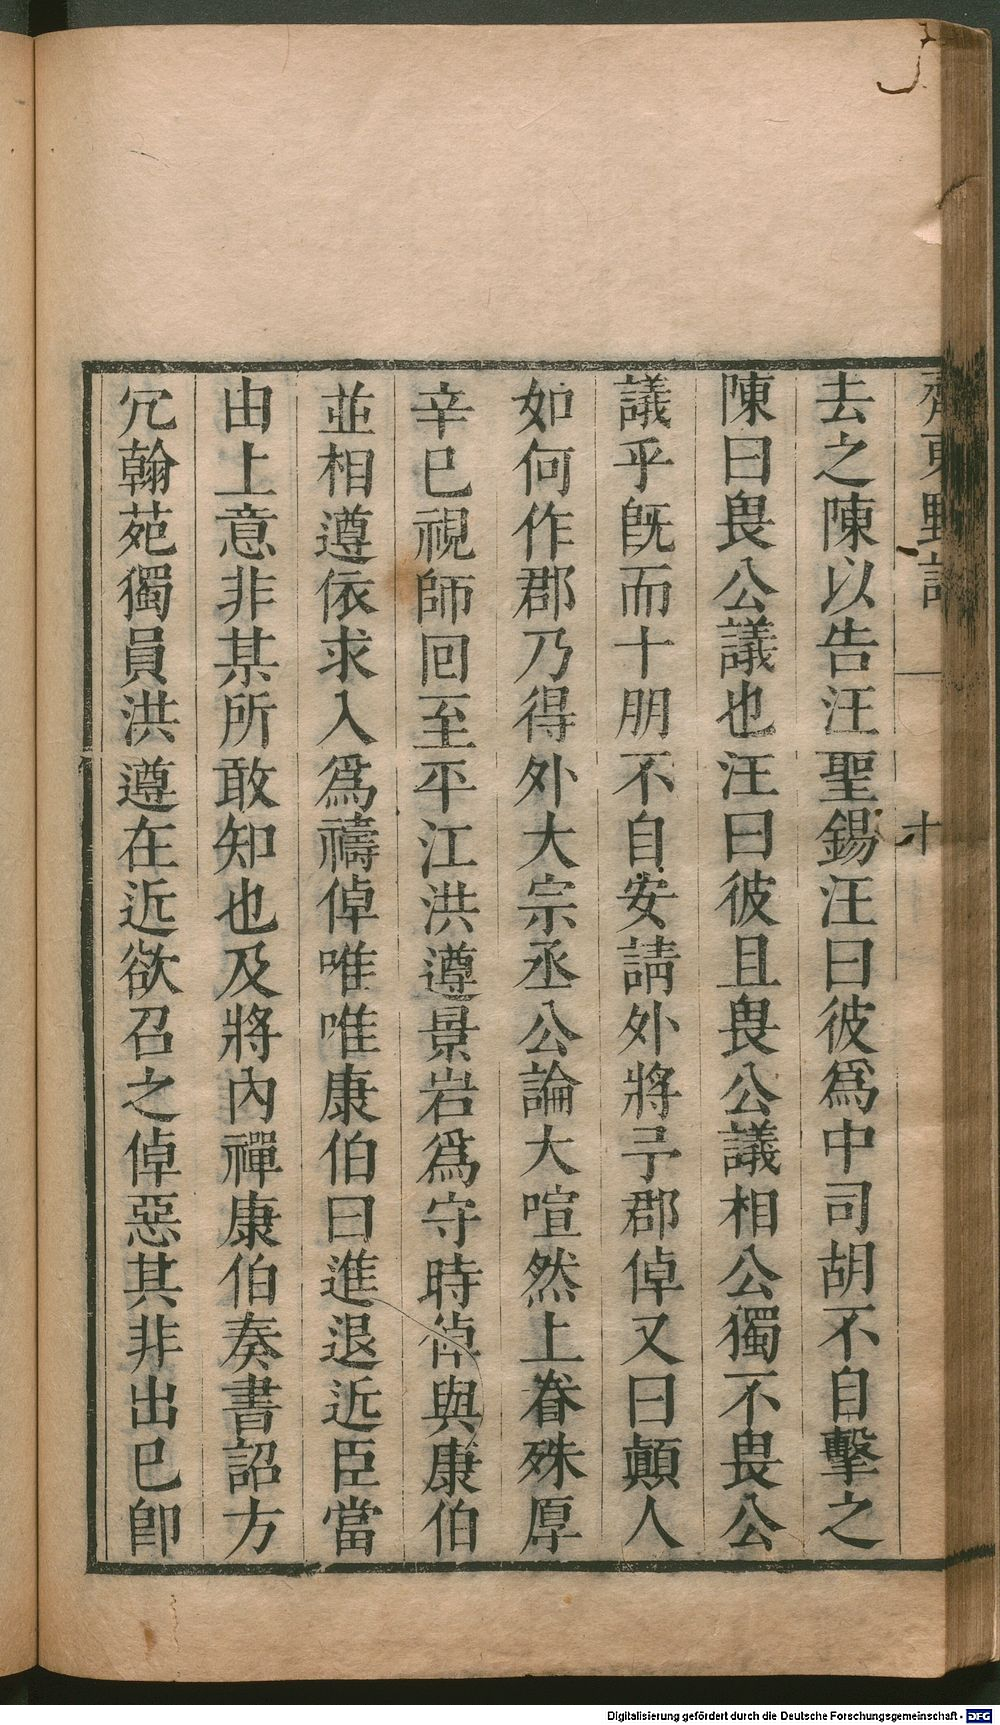 齊東野語
十
去之陳以告汪聖錫汪曰彼爲中司胡不自擊之
陳曰畏公議也汪曰彼且畏公議相公獨不畏公
議乎旣而十朋不自安請外將予郡倬又曰顛人
如何作郡乃得外大宗丞公論大喧然上眷殊厚
辛巳視師回至平江洪遵景岩爲守時倬與康伯
並相遵依求入爲禱倬唯唯康伯曰進退近臣當
由上意非某所敢知也及將內禪康伯奏書詔方
冗翰苑獨員洪遵在近欲召之倬惡其非出巳卽
Digitalisierung gefördert durch die Deutsche Forschungsgemeinschaft - DFG